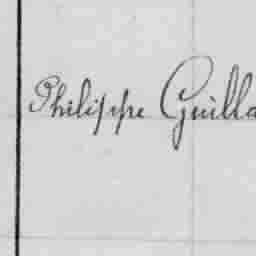 Philippe Guilla